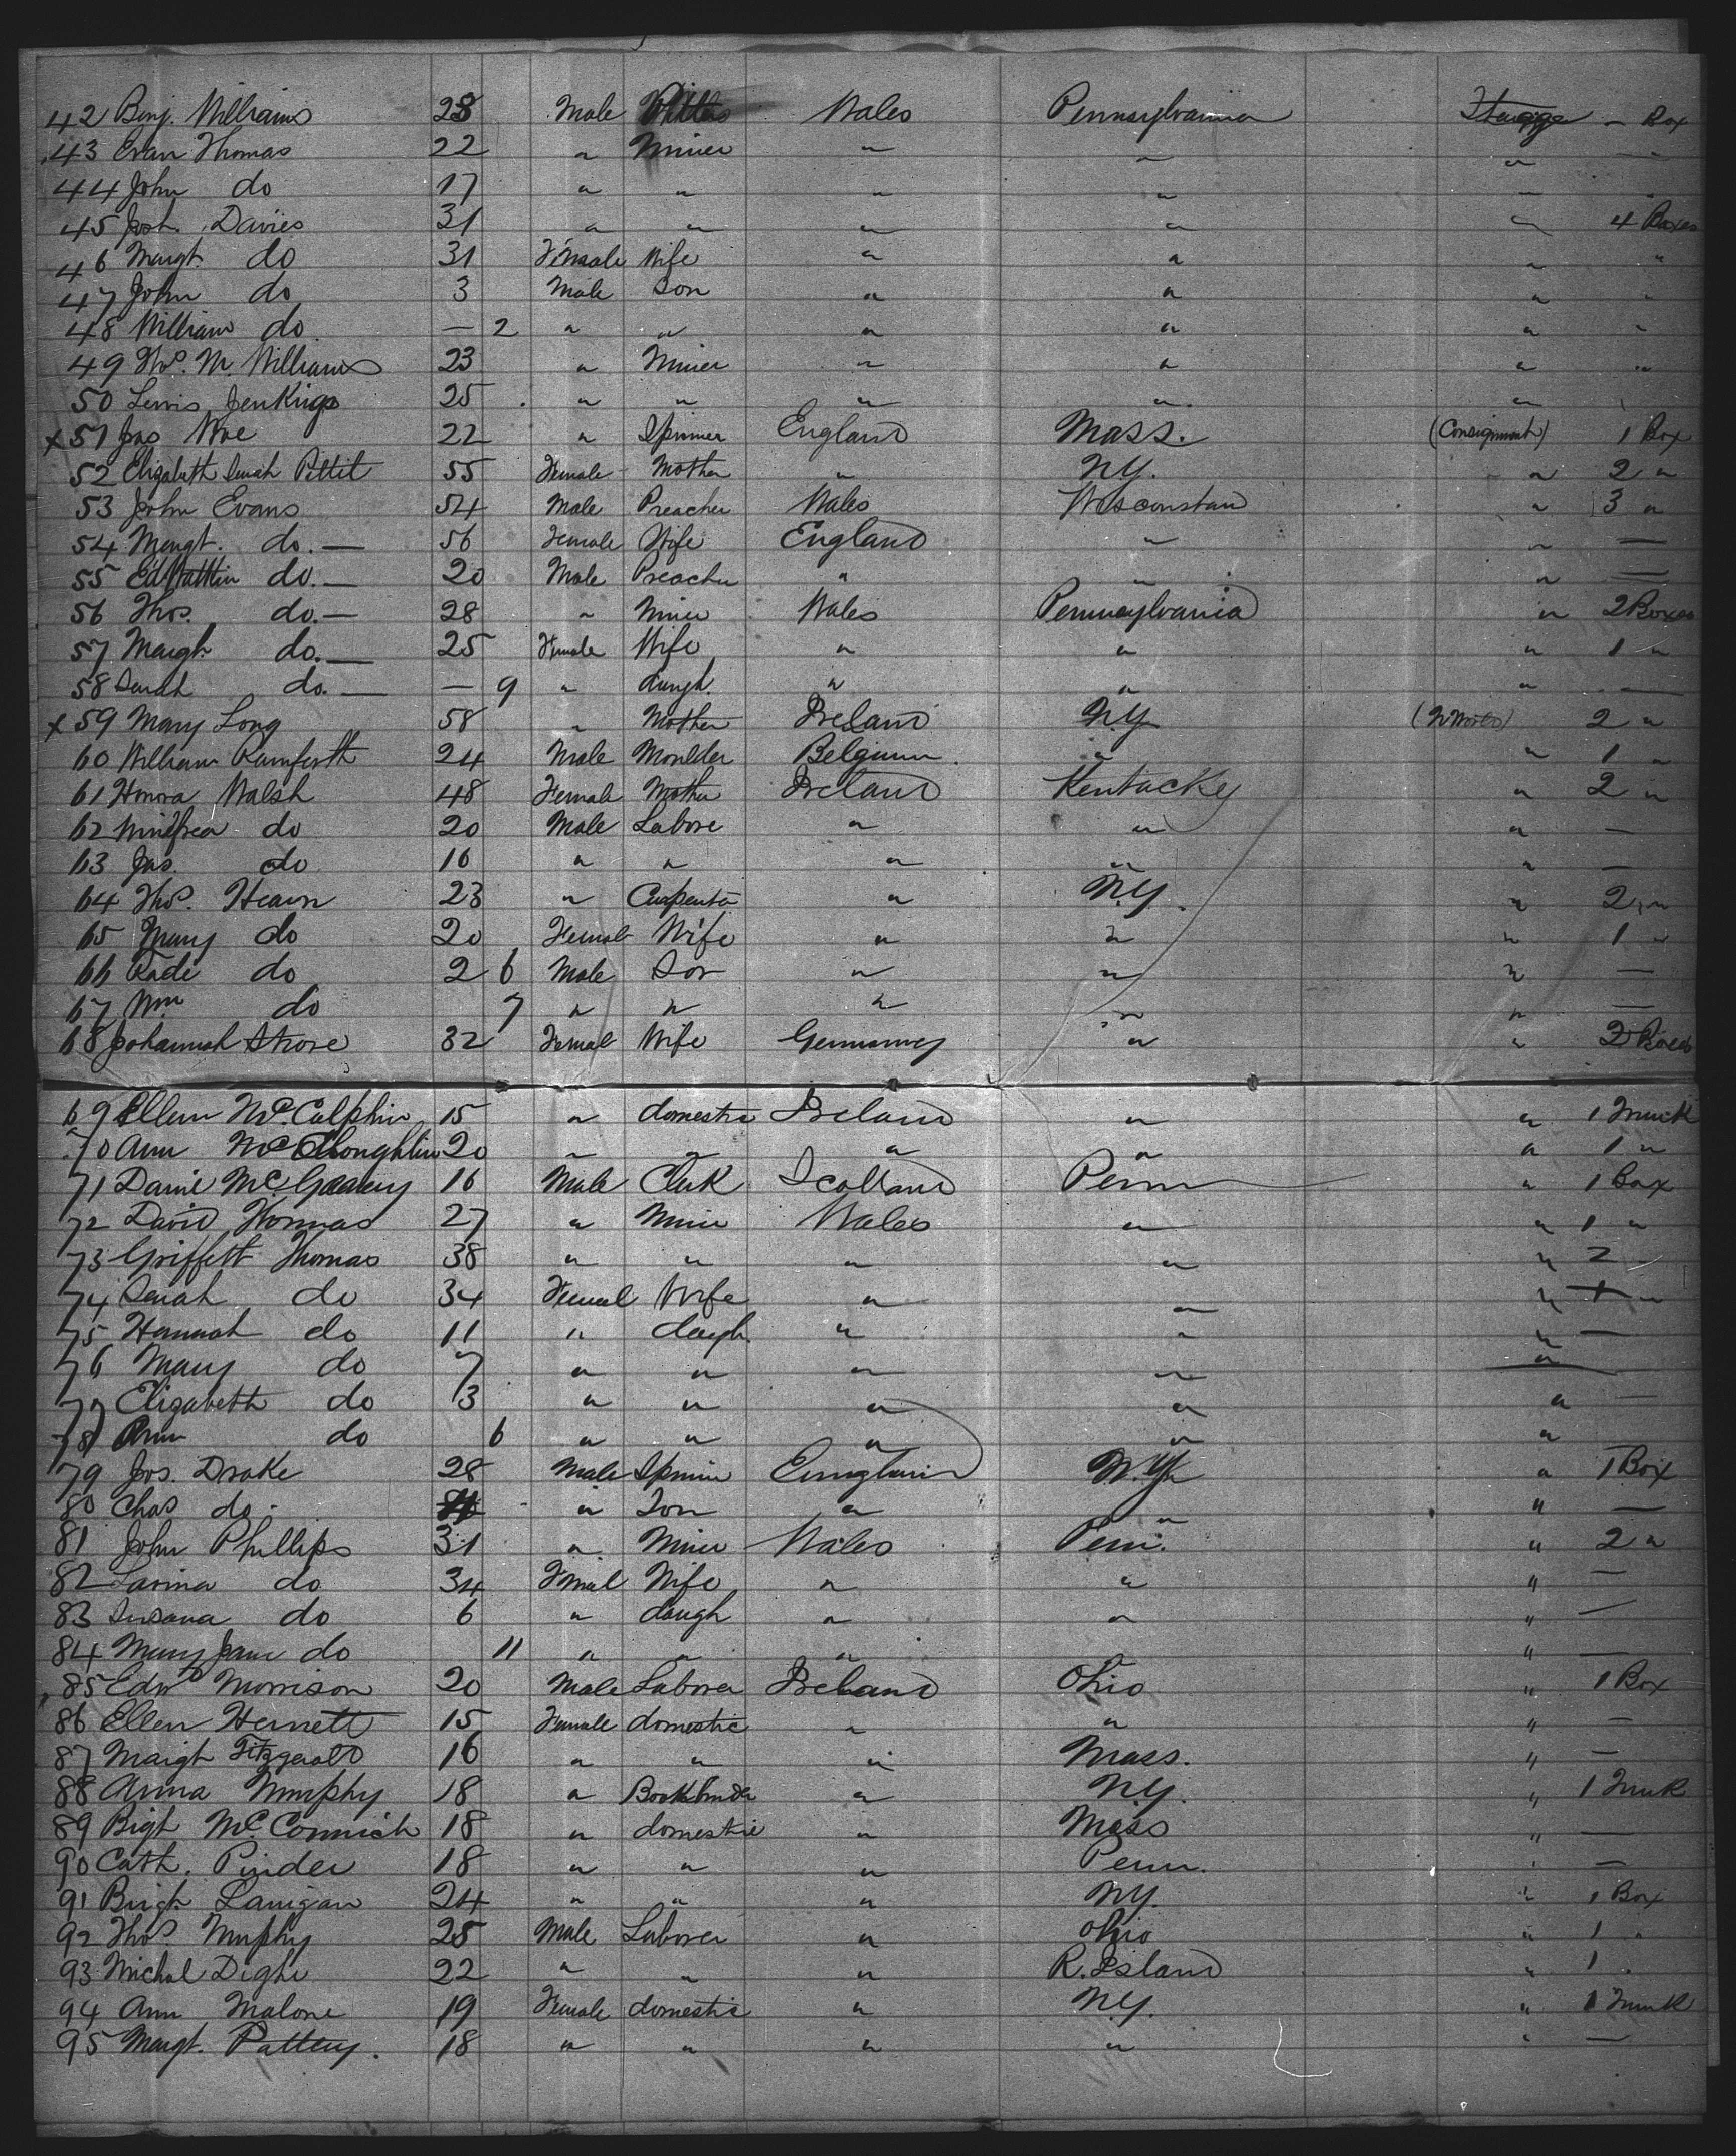 42 Benj. Williams 28 Male Wales Pennsylvania Box
43 Evan Thomas 22 " Miner " " " "
44 John do 17 " " " " " "
45 Josh. Davies 31 " " " " " 4 Boxes
46 Margt. do 31 Female Wife " " " "
47 John do 3 Male Son " " " "
48 William do — 2 " " " " " "
49 Thos. M. Williams 23 " Miner " " " "
50 Lewis Jenkings 25 " " " " "
x 51 Jas 22 " Spinner England Mass. (Consignment) 1 Box
52 Elizabeth Sarah Pettit 55 Female Mother " N.Y. " 2 "
53 John Evans 54 Male Preacher Wales Wisconstan " 3 "
54 Margt. do. — 56 Female Wife England " " —
55 Ed do. — 20 Male Preacher " " " —
56 Thos. do. — 28 " Miner Wales Pennsylvania " 2 Boxes
57 Margt. do. — 25 Female Wife " " " 1 "
58 Sarah do. — — 9 " daugh. " " " —
x 59 Mary Long 58 " Mother Ireland N.Y. 2 "
60 William Rumforth 24 Male Moulder Belgium. " " 1 "
61 Honora Walsh 48 Female Mother Ireland Kentucky " 2 "
62 do 20 Male Labore " " " —
63 Jas. do 16 " " " " " —
64 Thos. Hearn 23 " Carpenter " N.Y. " 2 "
65 Mary do 20 Female Wife " " " 1 "
66 do 2 6 Male Son " " " —
67 Wm do 7 " " " " " —
68 Johannah 32 Female Wife Germaney " " 2 Boxes
69 Ellen McCulphin 15 " domestic Ireland " " 1 Trunk
70 Ann 20 " " " " " 1 "
71 Daniel 16 Male Clerk Scotland Penn " 1 Box
72 David Thomas 27 " Miner Wales " " 1 "
73 Griffett Thomas 38 " " " " " 2
74 Sarah do 34 Femal Wife " " " 1 "
75 Hannah do 11 " daugh. " " " —
76 Mary do 7 " " " " "
77 Elizabeth do 3 " " " " " —
78 Ann do 6 " " " " "
79 Jos. Drake 28 Male Spinner N.Y. " 1 Box
80 Chas do. " Son " " " —
81 John Phillips 31 " Miner Wales Penn. " 2 "
82 Lavina do 34 Femal Wife " " " —
83 Susana do 6 " daugh " " " —
84 Mary Jane do 11 " " " " " —
85 Edwd Morrison 20 Male Laborer Ireland Ohio " 1 Box
86 Ellen Hernett 15 Female domestic " " " —
87 Margt Fitzgerald 16 " " " Mass. " —
88 Anna Murphy 18 " Bookbinder " N.Y. " 1 Trunk
89 Bigt McCormick 18 " domestic " Mass " —
90 Cath. Pinder 18 " " " Penn. " —
91 Birgt. Lanigan 24 " " " N.Y. " 1 Box
92 Thos Murphy 25 Male Laborer " Ohio " 1 "
93 Michal Dighe 22 " " " R. Island " 1 "
94 Ann Malone 19 Female domestic " N.Y. " 1 Trunk
95 Margt. Patteny. 18 " " " " " —